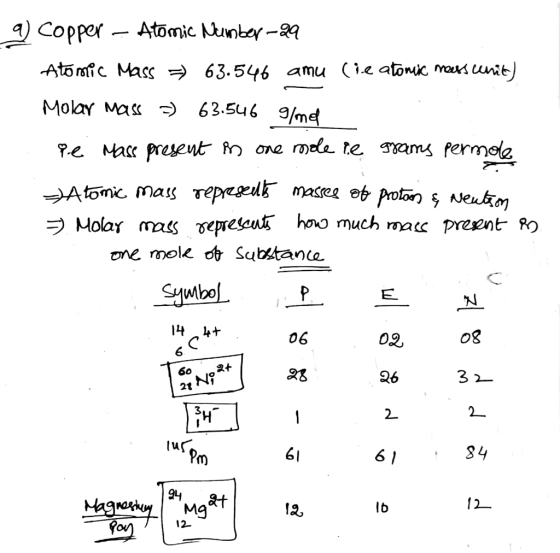 9) Copper - Atomic Number - 29
Atomic Mass ⇒ 63.546 amu (i.e atomic mass unit)
Molar Mass ⇒ 63.546 g/mol
i.e Mass present in one mole i.e grams permole
⇒ Atomic mass represents masses of proton & Neutron
⇒ Molar mass represents how much mass present in
one mole of Substance
Symbol P E N
¹⁴₆C⁴⁺ 06 02 08
⁶⁰₂₈Ni²⁺ 28 26 32
³₁H⁻ 1 2 2
¹⁴⁵Pm 61 61 84
Magnesium ²⁴₁₂Mg²⁺ 12 10 12
Ion